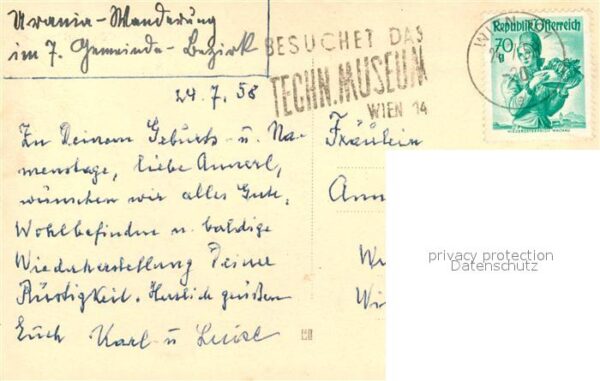 Urania-Wanderung
im 7. Gemeinde-Bezirk
BESUCHET DAS
TECHN. MUSEUM
WIEN 14
WIEN
Republik Österreich
70
g
NIEDERÖSTERREICH WACHAU
24.7.58
Zu Deinem Geburts- u. Na-
menstage, liebe Annerl,
wünschen wir alles Gute,
Wohlbefinden u. baldige
Wiederherstellung Deiner
Rüstigkeit. Herzlich grüßen
Euch Karl u Luise
Fräulein
Ann
W
Wi
privacy protection
Datenschutz